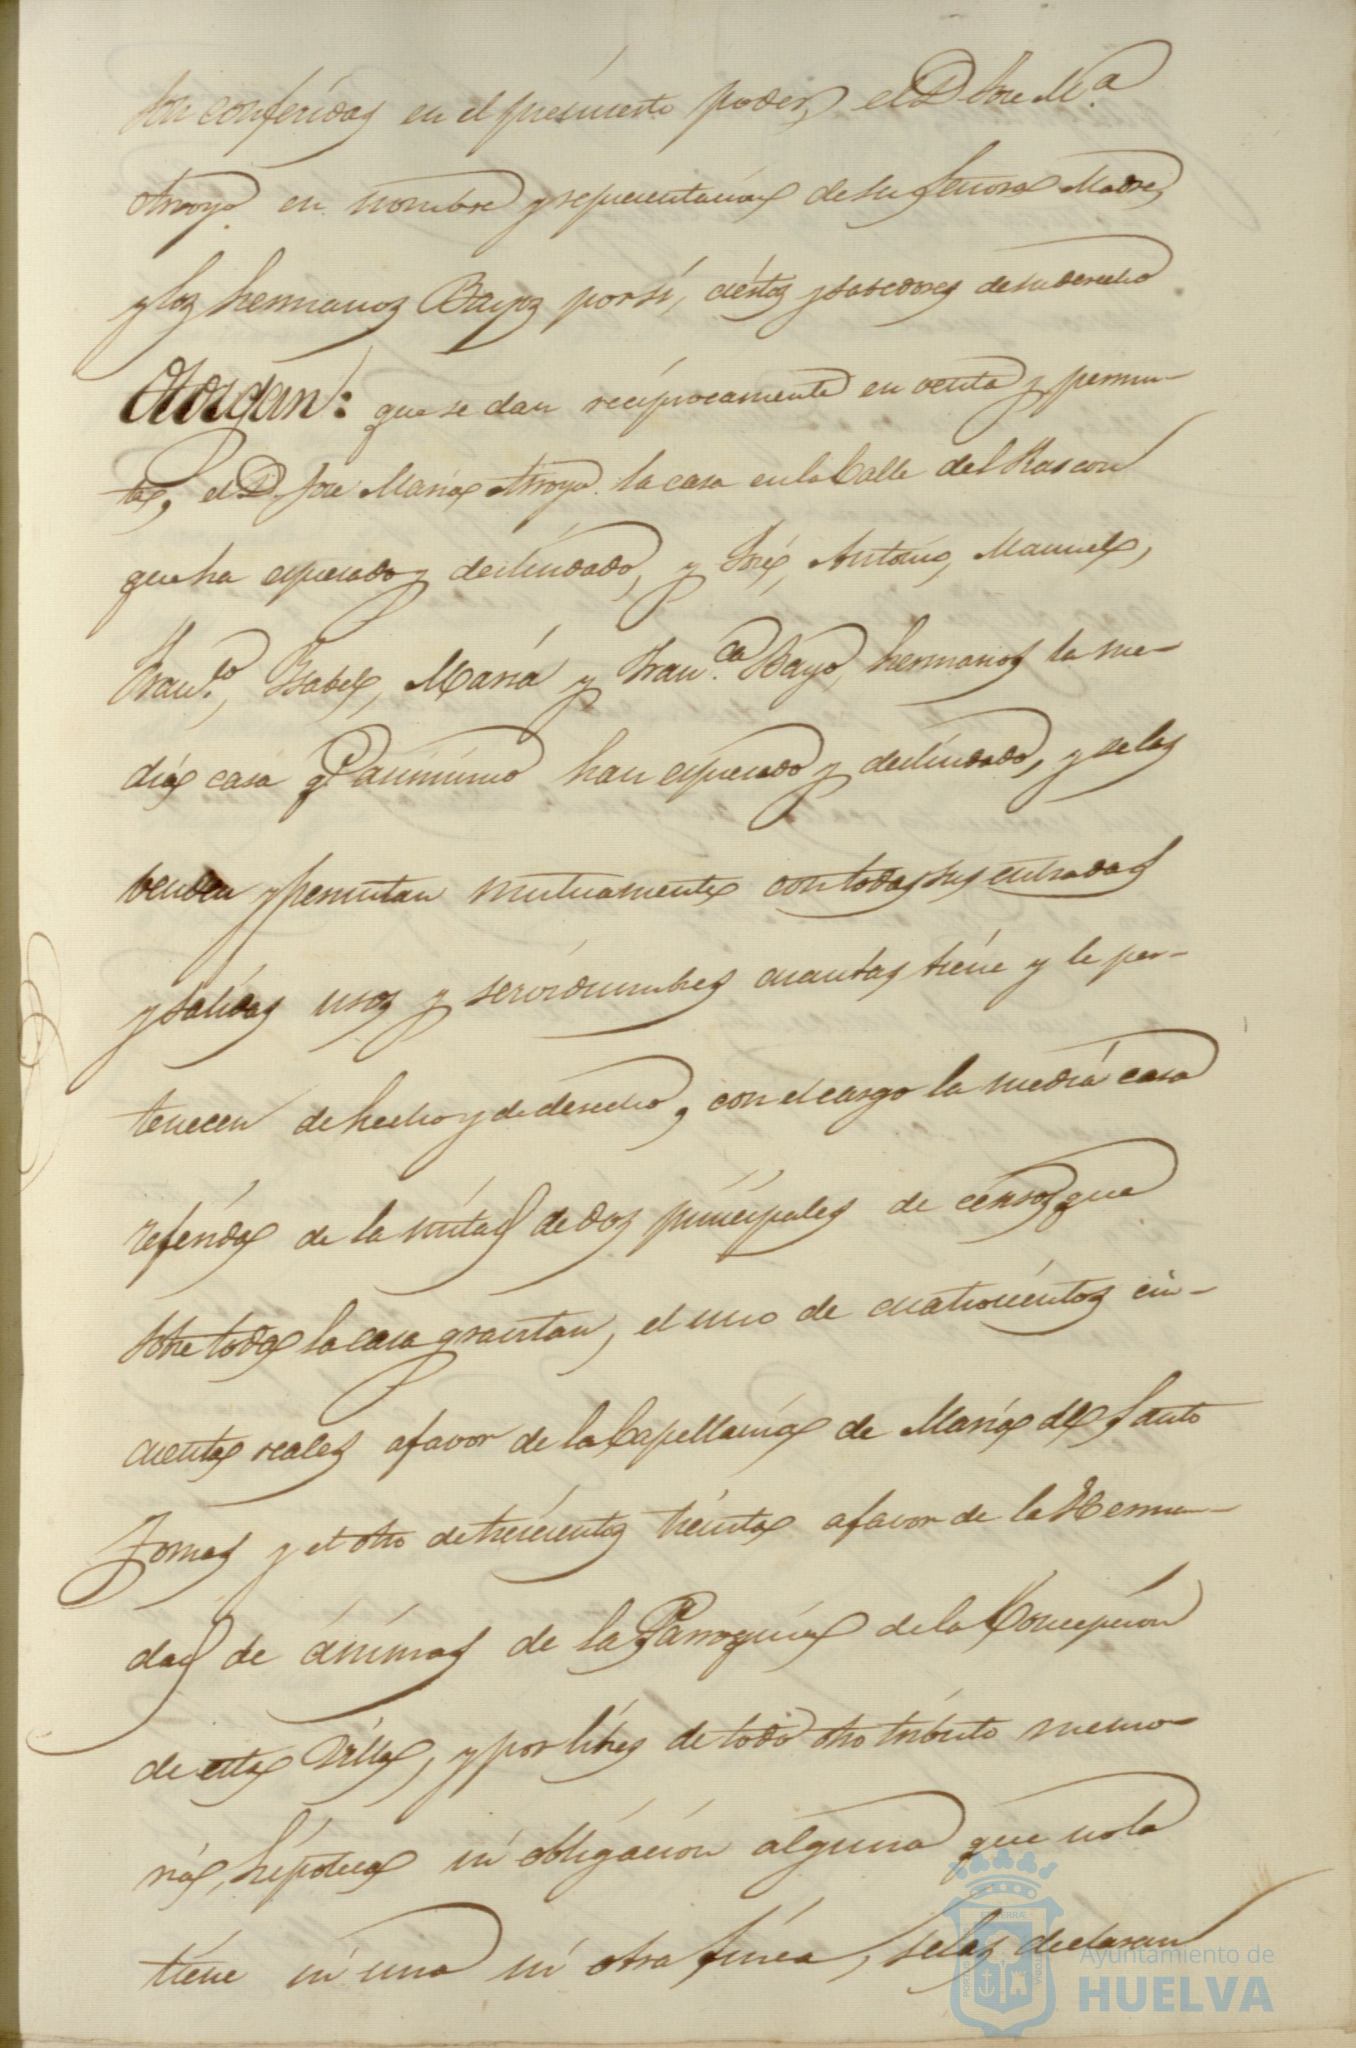 son conferidas en el presiuesto poder, el D. Jose M.ª
Arroyo en nombre y representacion de su Señora Madre,
y los hermanos Bayos por sí, ciertos y sabedores de su derecho
Otorgan: que se dan reciprocamente en venta y permu-
ta, el D. Jose Maria Arroyo la casa en la Calle del Rascon
que ha espresado y deslindado, y José, Antonio, Manuel,
Fran.co, Isabel, María y Fran.ca Bayo, hermanos la me-
dia casa q. Parimimo han espresado y deslindado, y se las
venden y permutan mutuamente con todas sus entradas
y salidas usos y servidumbres cuantas tiene y le per-
tenecen de hecho y de derecho, con el cargo la media casa
referida de la mitad de dos principales de censos que
sobre toda la casa gravitan, el uno de cuatrocientos cin-
cuenta reales a favor de la Capellania de Maria del Santo
Tomas y el otro de trescientos treinta a favor de la Herman-
dad de ánimas de la Parroquia de la Concepcion
de esta Villa, y por libres de todo otro tributo memo-
ria, hipoteca ni obligacion alguna que no la
tiene ni una ni otra finca, se las declaran
Ayuntamiento de
HUELVA